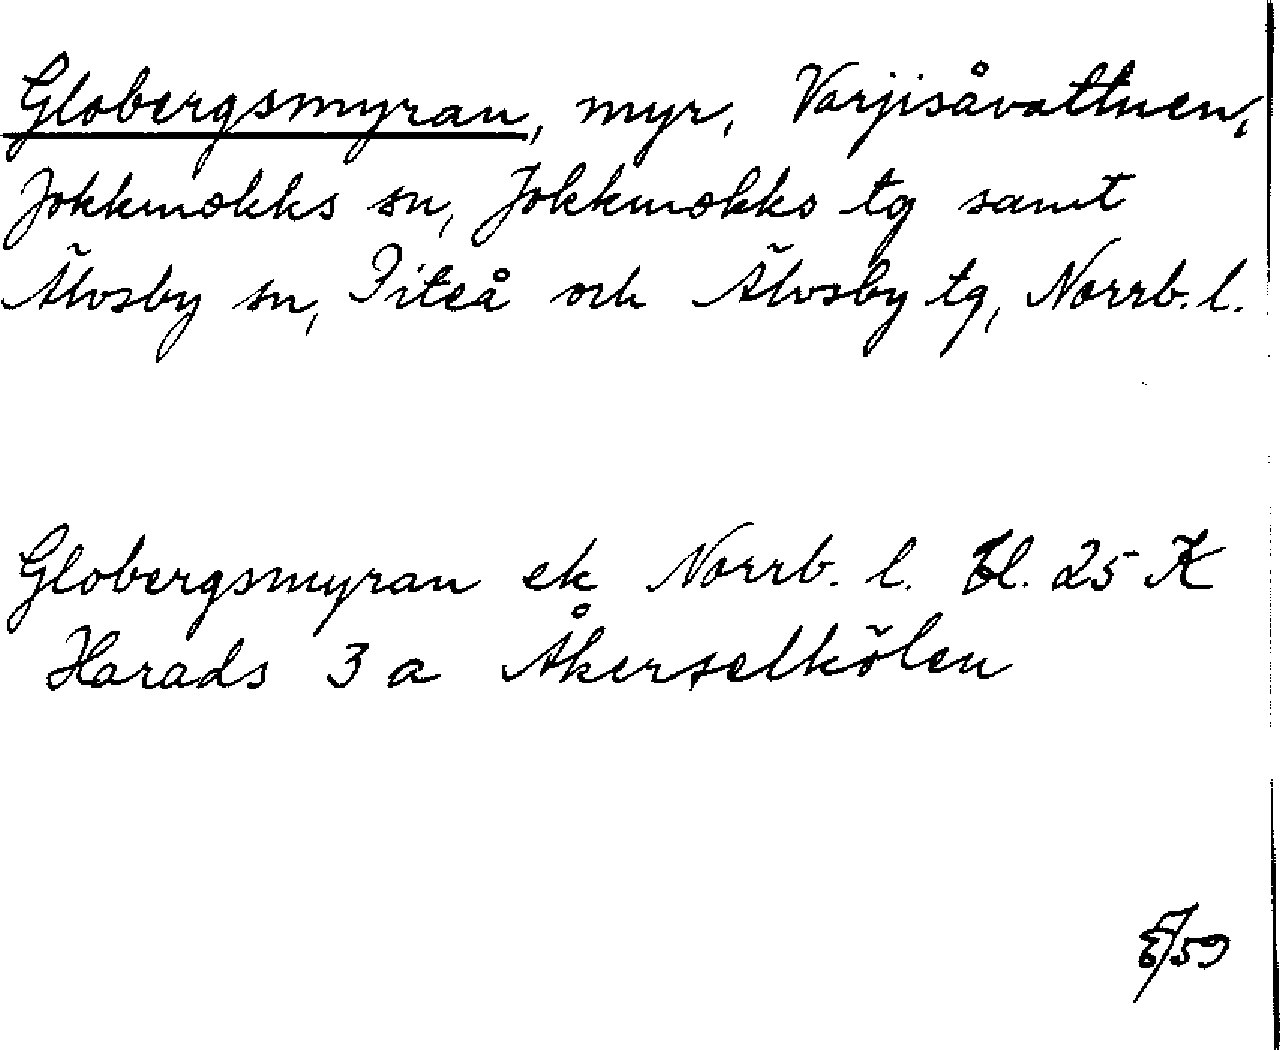 Globergsmyran, myr, Varjisåvattnen,
Jokkmokks sn, Jokkmokks tg samt
Älvsby sn, Piteå och Älvsby tg, Norrb. l.
Globergsmyran ek Norrb. l. bl. 25 K
Harads 3 a Åkerselkölen
/59